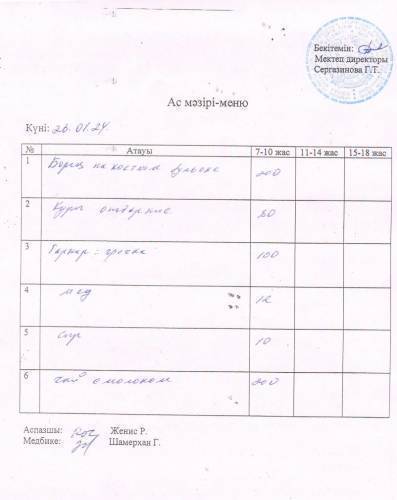 Бекітемін:
Мектеп директоры
Сергазинова Г.Т.
Ас мәзірі-меню
Күні: 26.01.24
№ Атауы 7-10 жас 11-14 жас 15-18 жас
1 Борщ на костном бульоне 200
2 Куры отварные 80
3 Гарнир: гречка 100
4 мед 12
5 Сыр 10
6 чай с молоком 200
Аспазшы: Женис Р.
Медбике: Шамерхан Г.